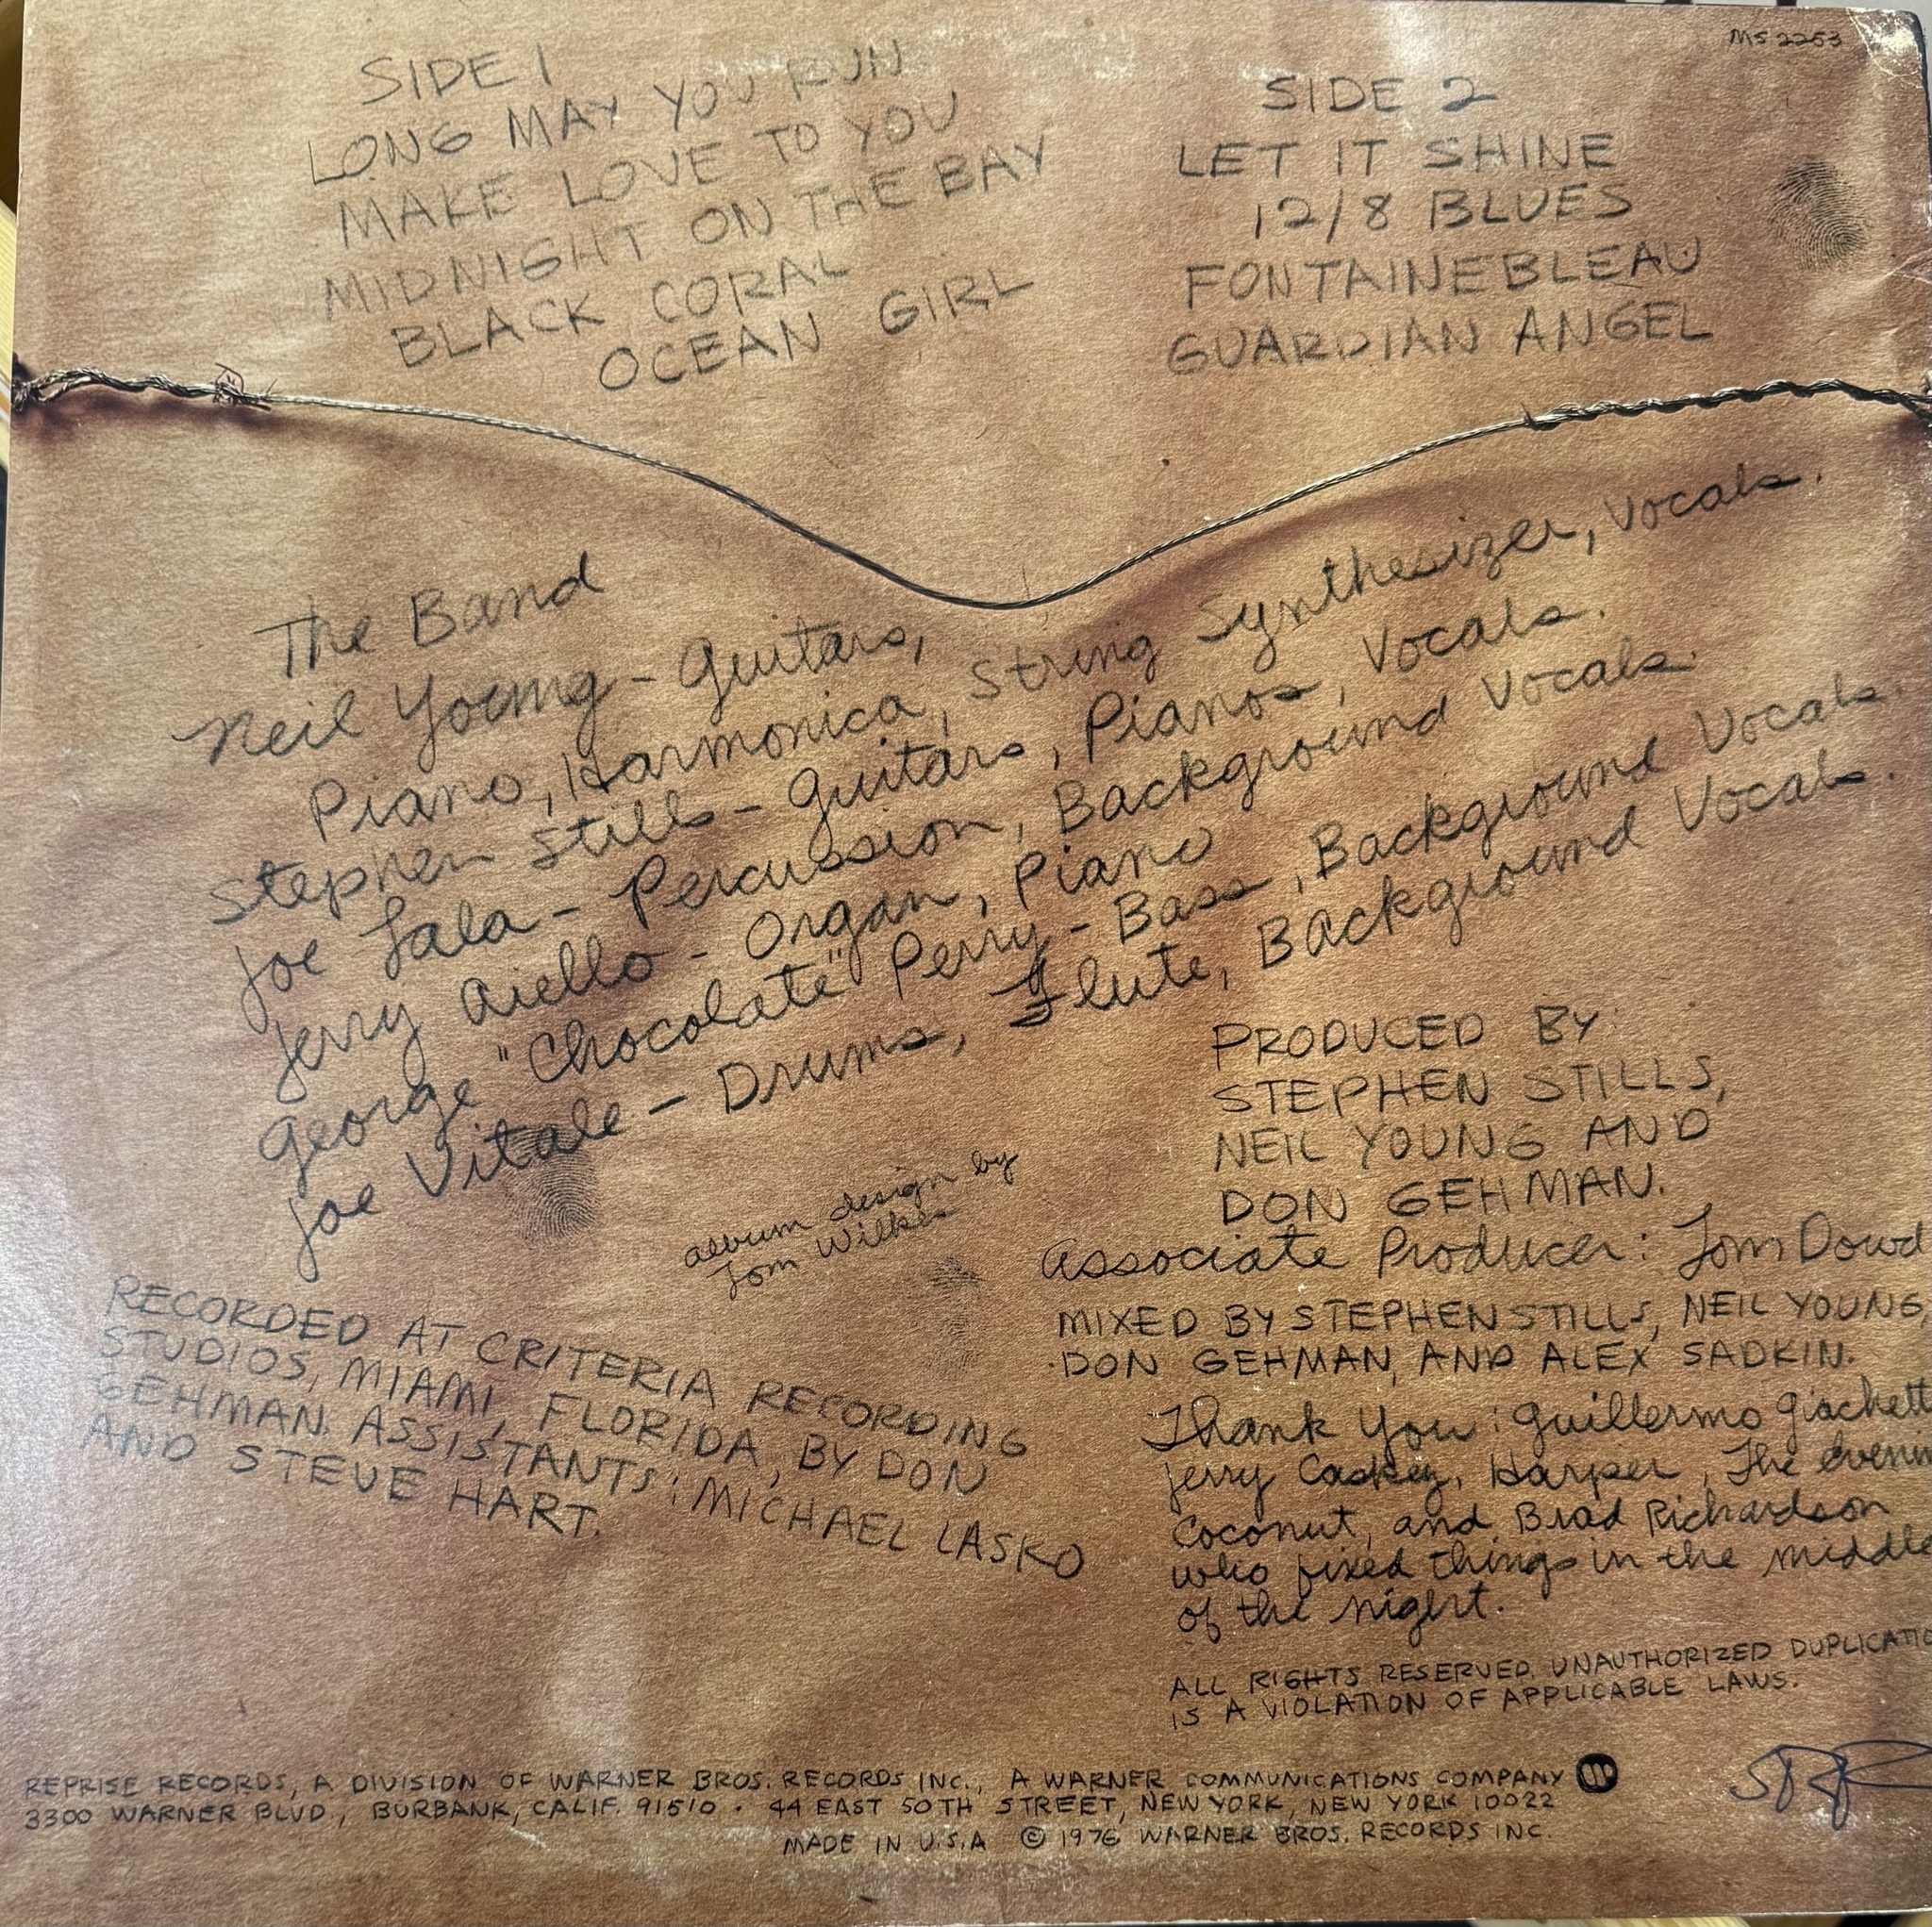 MS 2253
SIDE 1
LONG MAY YOU RUN
MAKE LOVE TO YOU
MIDNIGHT ON THE BAY
BLACK CORAL
OCEAN GIRL
SIDE 2
LET IT SHINE
12/8 BLUES
FONTAINEBLEAU
GUARDIAN ANGEL
The Band
Neil Young - Guitars,
Piano, Harmonica, String Synthesizer, Vocals.
Stephen Stills - Guitars, Pianos, Vocals.
Joe Lala - Percussion, Background Vocals.
Jerry Aiello - Organ, Piano
George "Chocolate" Perry - Bass, Background Vocals.
Joe Vitale - Drums, Flute, Background Vocals.
album design by
Tom Wilkes
PRODUCED BY:
STEPHEN STILLS,
NEIL YOUNG AND
DON GEHMAN.
Associate Producer: Tom Dowd
MIXED BY STEPHEN STILLS, NEIL YOUNG,
DON GEHMAN, AND ALEX SADKIN.
RECORDED AT CRITERIA RECORDING
STUDIOS, MIAMI, FLORIDA, BY DON
GEHMAN. ASSISTANTS: MICHAEL LASKO
AND STEVE HART.
Thank You: Guillermo Giachett
Jerry Caskey, Harper, The evenin
Coconut, and Brad Richardson
who fixed things in the middle
of the night.
ALL RIGHTS RESERVED. UNAUTHORIZED DUPLICATIO
IS A VIOLATION OF APPLICABLE LAWS.
REPRISE RECORDS, A DIVISION OF WARNER BROS. RECORDS INC., A WARNER COMMUNICATIONS COMPANY
3300 WARNER BLVD., BURBANK, CALIF. 91510 · 44 EAST 50TH STREET, NEW YORK, NEW YORK 10022
MADE IN U.S.A © 1976 WARNER BROS. RECORDS INC.